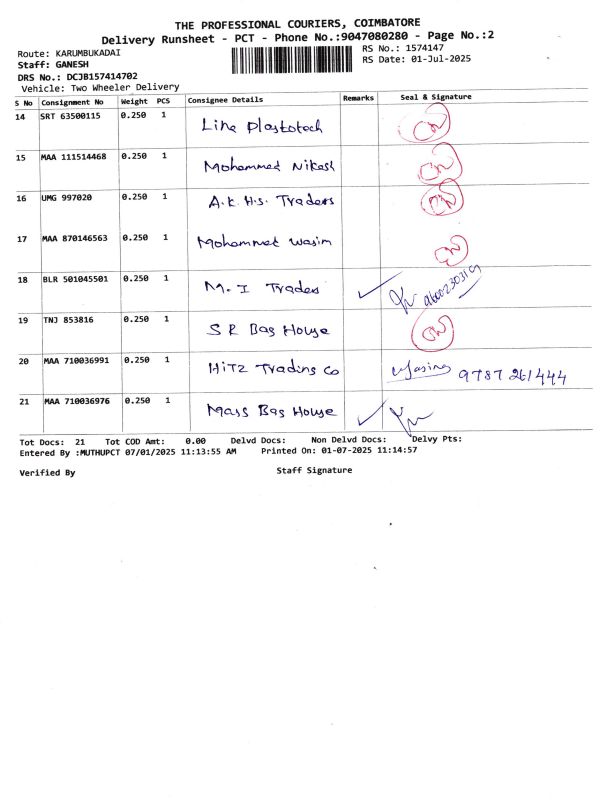 THE PROFESSIONAL COURIERS, COIMBATORE
Delivery Runsheet - PCT - Phone No.:9047080280 - Page No.:2
Route: KARUMBUKADAI RS No.: 1574147
Staff: GANESH RS Date: 01-Jul-2025
DRS No.: DCJB157414702
Vehicle: Two Wheeler Delivery
S No Consignment No Weight PCS Consignee Details Remarks Seal & Signature
14 SRT 63500115 0.250 1 Line Plastotech ON
15 MAA 111514468 0.250 1 Mohammed Nikesh ON
16 UMG 997020 0.250 1 A.K.H.S. Traders ON
17 MAA 870146563 0.250 1 Mohammed Wasim ON
18 BLR 501045501 0.250 1 M. I Traders ✓
19 TNJ 853816 0.250 1 S R Bag House ON
20 MAA 710036991 0.250 1 HiTZ Trading Co 9787 261444
21 MAA 710036976 0.250 1 Mass Bag House ✓
Tot Docs: 21 Tot COD Amt: 0.00 Delvd Docs: Non Delvd Docs: Delvy Pts:
Entered By :MUTHUPCT 07/01/2025 11:13:55 AM Printed On: 01-07-2025 11:14:57
Verified By Staff Signature